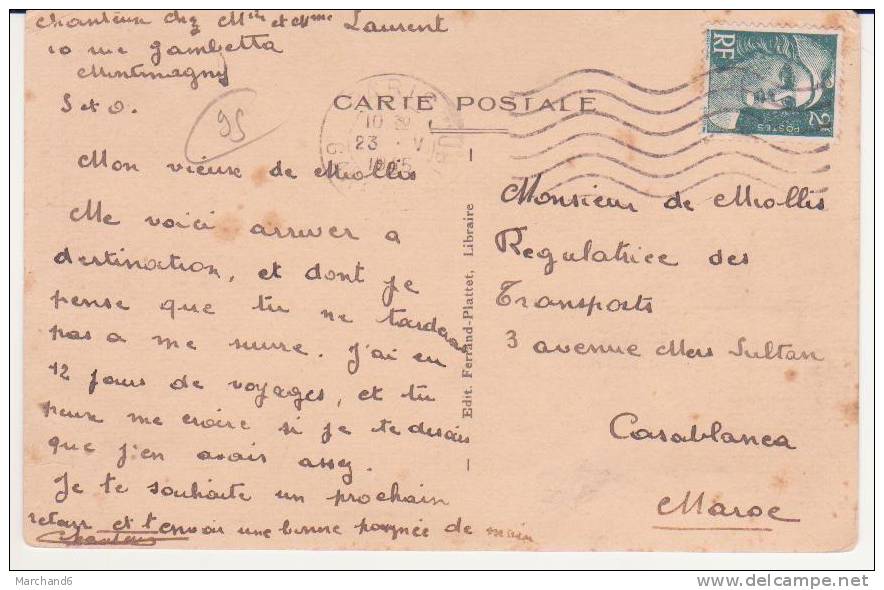 Chanteux chez Mlle et Mme Laurent
10 rue Gambetta
Montmagny
S et O.
95
Mon vieux de Miollis
Me voici arriver a
destination, et dont je
pense que tu ne tarderas
pas a me suivre. J'ai eu
12 jours de voyages, et tu
peux me croire si je te disais
que j'en avais assez.
Je te souhaite un prochain
retour et t'envoir une bonne poignée de main
CARTE POSTALE
PARIS
10 H
23 · V
Edit. Ferrand-Plattet, Libraire
RF
2F
POSTES
Monsieur de Miollis
Regulatrice des
Transports
3 avenue Mers Sultan
Casablanca
Maroc
Marchand6
delcampe.net